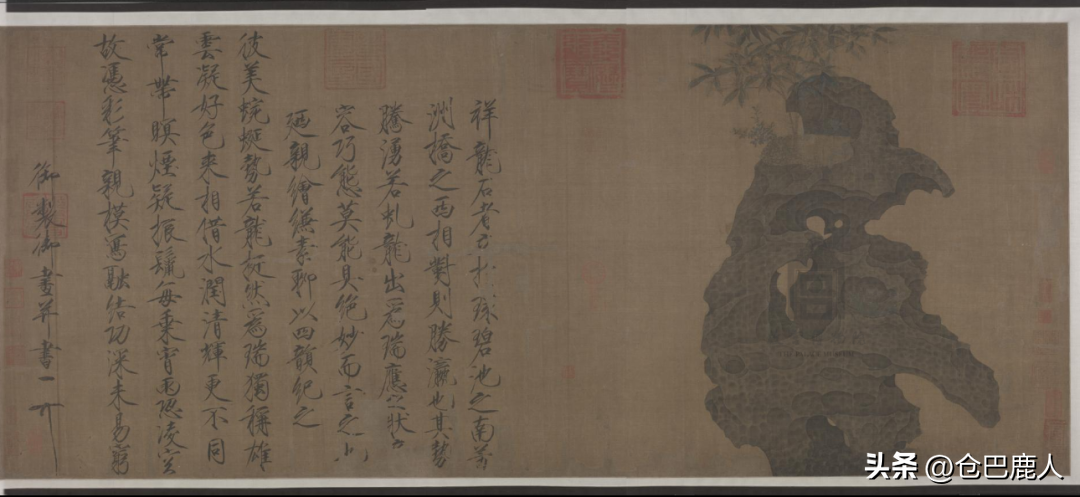 祥龍石者立於環碧池之南芳
洲橋之西相對則勝瀛也其勢
騰湧若虬龍出為瑞應之狀奇
容巧態莫能具絕妙而言之也
廼親繪縑素聊以四韻紀之
彼美蜿蜒勢若龍挺然為瑞獨稱雄
雲凝好色來相借水潤清輝更不同
常帶暝煙疑振鬣每乘宵雨恐凌空
故憑彩筆親模寫融結功深未易窮
御製御畫并書
头条 @仓巴鹿人